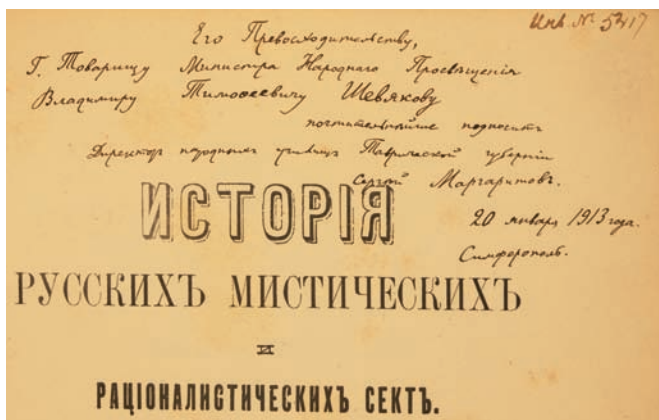 Инв № 5217
Его Превосходительству,
Г. Товарищу Министра Народнаго Просвѣщенія
Владимиру Тимоѳеевичу Шевякову
почтительнѣйше подноситъ
Директоръ народныхъ училищъ Таврической губерніи
Сергѣй Маргаритовъ.
20 января 1913 года.
Симферополь.
ИСТОРІЯ
РУССКИХЪ МИСТИЧЕСКИХЪ
И
РАЦІОНАЛИСТИЧЕСКИХЪ СЕКТЪ.